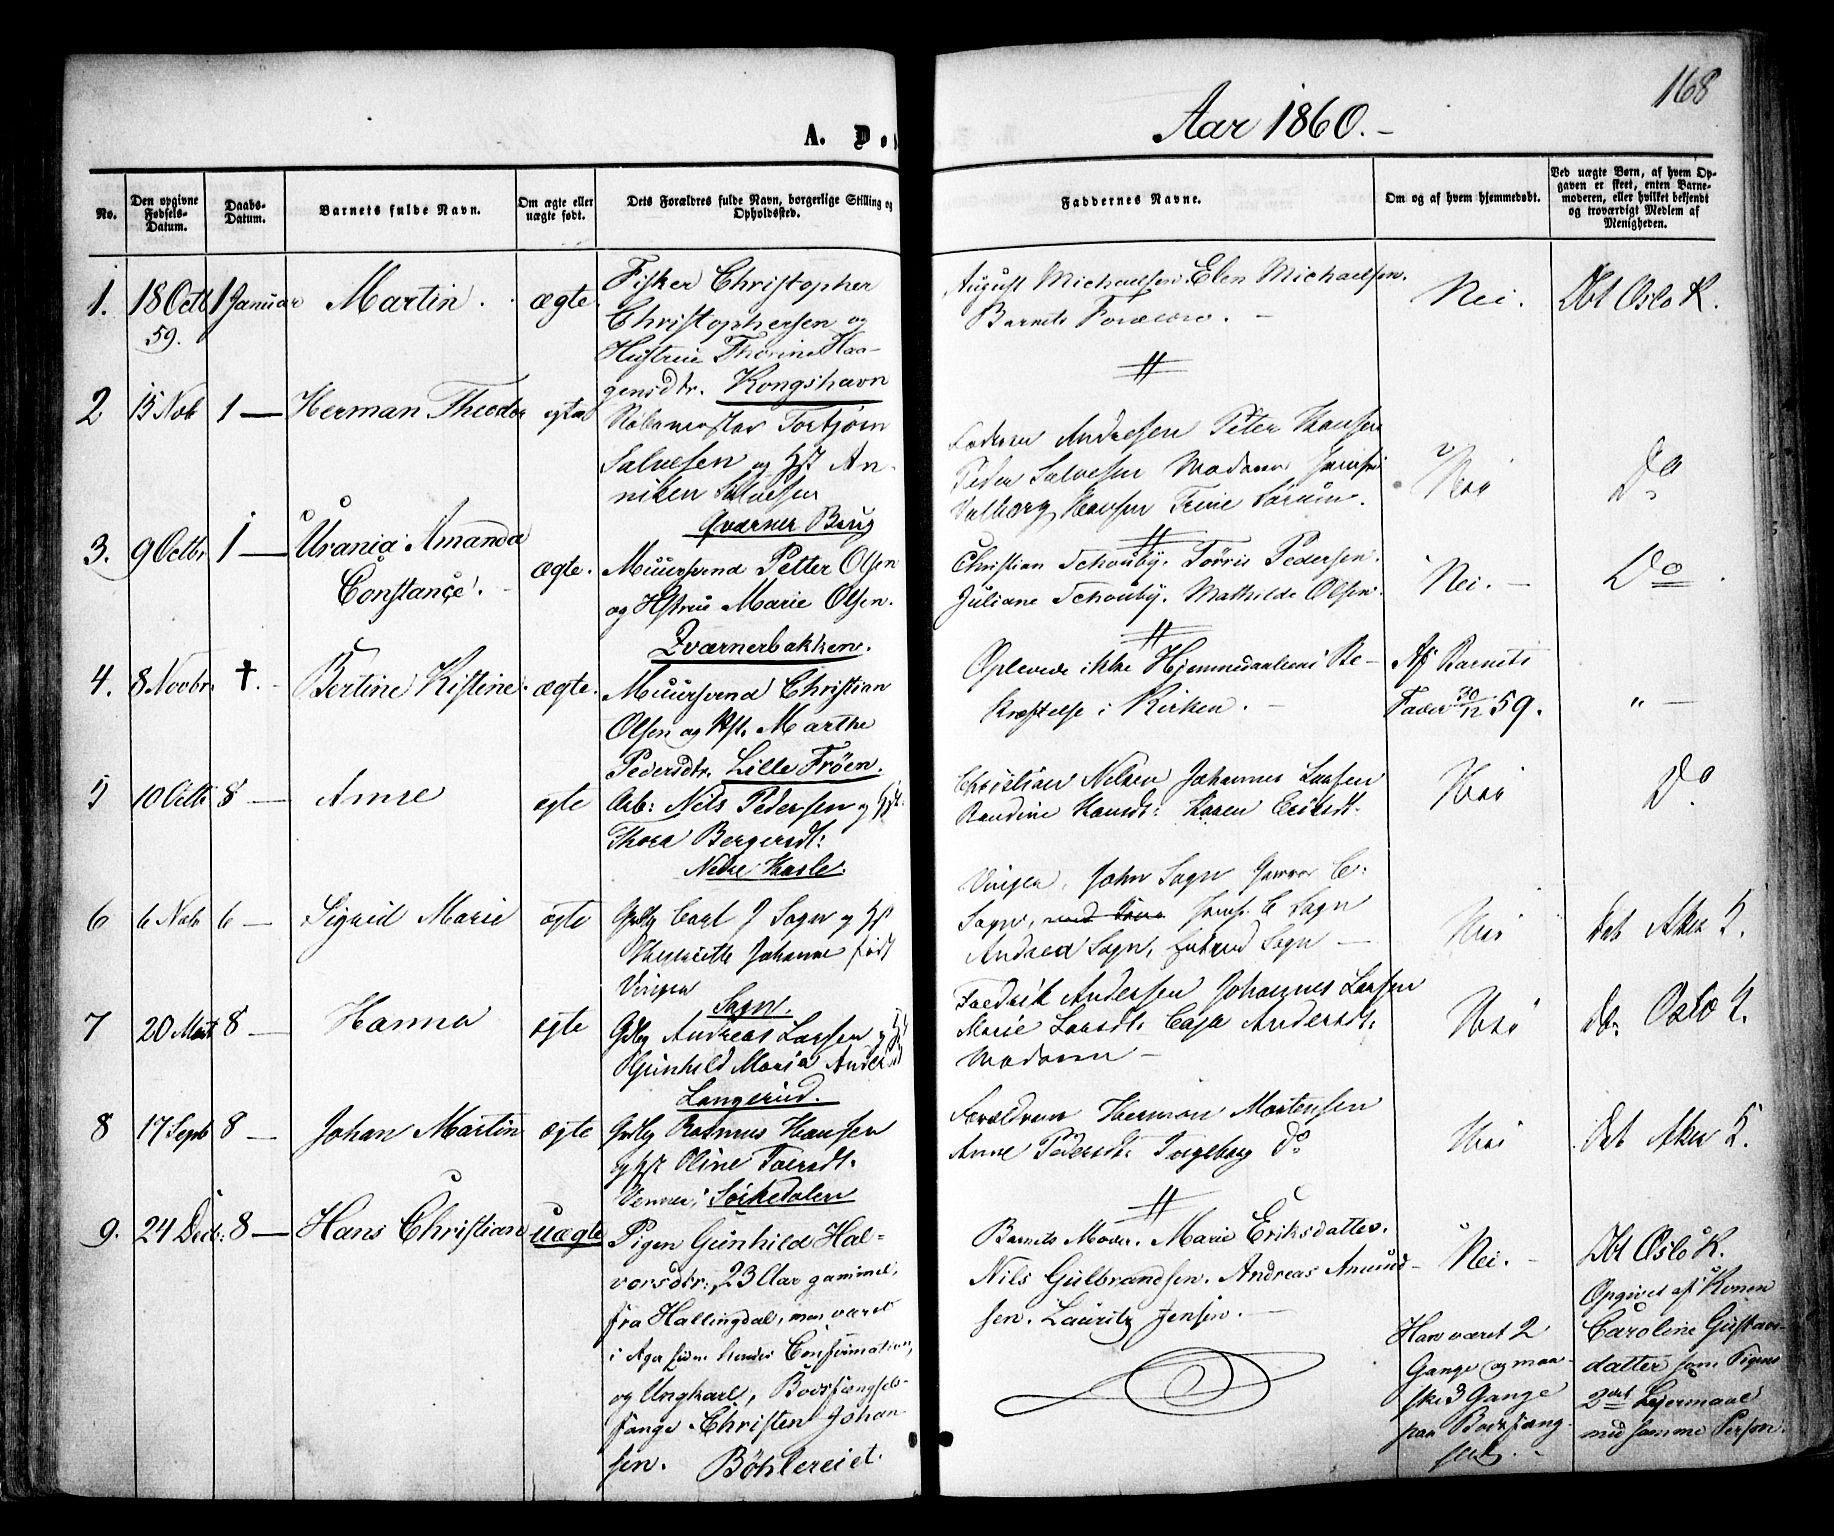 168
Aar 1860.
A. Do
No.
Den opgivne Fødsels-Datum.
Daabs-Datum.
Barnets fulde Navn.
Om ægte eller uægte født.
Dets Forældres fulde Navn, borgerlige Stilling og Opholdssted.
Faddernes Navne.
Om og af hvem hjemmedøbt.
Ved uægte Børn, af hvem Opgaven er skeet, enten Barnemoderen, eller hvilket bekjendt og troværdigt Medlem af Menigheden.
1. 18 Octb 59. 1 Januar Martin. ægte.
Fisker Christopher
Christophersen og
Hustrue Thorine Haa-
gensdtr. Kongshavn
August Michaelsen. Elen Michaelsen.
Barnets Forældre.
Nei. Dbt Oslo K.
2 15 Nob 1 — Herman Theodor egte
Torbjørn
Salvesen og Hst An-
niken Salvesen
Qværner Berg
Andresen Peter Hansen
Peder Salvesen Madame
Valborg Hansen Trine
Nei Do
3. 9 Octbr 1 — Urania Amanda
Constance. ægte.
Muursvend Petter Olsen
og Hstrue Marie Olsen.
Qværnerbakken.
Christian Schouby. Tørris Pedersen.
Juliane Schouby. Mathilde Olsen.
Nei. — Do
4. 8 Novbr. †. Bertine Kistine. ægte.
Muursvend Christian
Olsen og Hst. Marthe
Pedersdtr. Lille Frøen.
Oplevede ikke Hjemmedaabens Be-
kræftelse i Kirken.
Af Barnets
Fader 30/12 59.
" —
5 10 Octb 8 — Anne egte
Arb: Nils Pedersen og Hst.
Thora Bergersdt:
Nedre Hasle.
Christian Nelsen Johannes Larsen
Randine Hansdt: Karen Eriksdt.
Nei Do
6 6 Nob 6 — Sigrid Marie egte
Gdbg Carl J Sagn og Hst
Henriette Johanne født
Sagn.
John Sagn
Andrea Sagn, Sagn —
Nei Dbt Aker K.
7 20 8 — Hanna egte
Gdbg Andreas Larsen og
Gunhild Maria
Langerud.
Fredrik Andersen Johannes Larsen
Marie Larsdt: Andersdt:
Madamm —
Nei Db: Oslo K.
8 17 Septb 8 — Johan Martin egte
Gdbg Rasmus Hansen
og Hst Oline
Sørkedalen
Forældrene Herman Mortensen
Anne Pedersdt: Ingeborg Do
Nei Dbt Aker K.
9. 24 Decb: 8 — Hans Christian uægte
Pigen Gunhild Hal-
vorsdtr: 23 Aar gammel,
fra Hallingdal, men været
i Ager siden hendes Confirmation,
og Ungkarl, Bodsfængsels-
fange Christen Johan-
sen. Böhlereiet.
Barnets Moder. Marie Eriksdatter.
Nils Gulbrandsen. Andreas Amund-
sen. Lauritz Jensen. —
Nei. —
Har været 2
Gange og maa-
ske 3 Gange
paa Bodsfæng-
slet. —
Dbt Oslo K.
Opgivet af Konen
Caroline Gustavs-
datter som Pigens
2det Leiermaal
med samme Person.